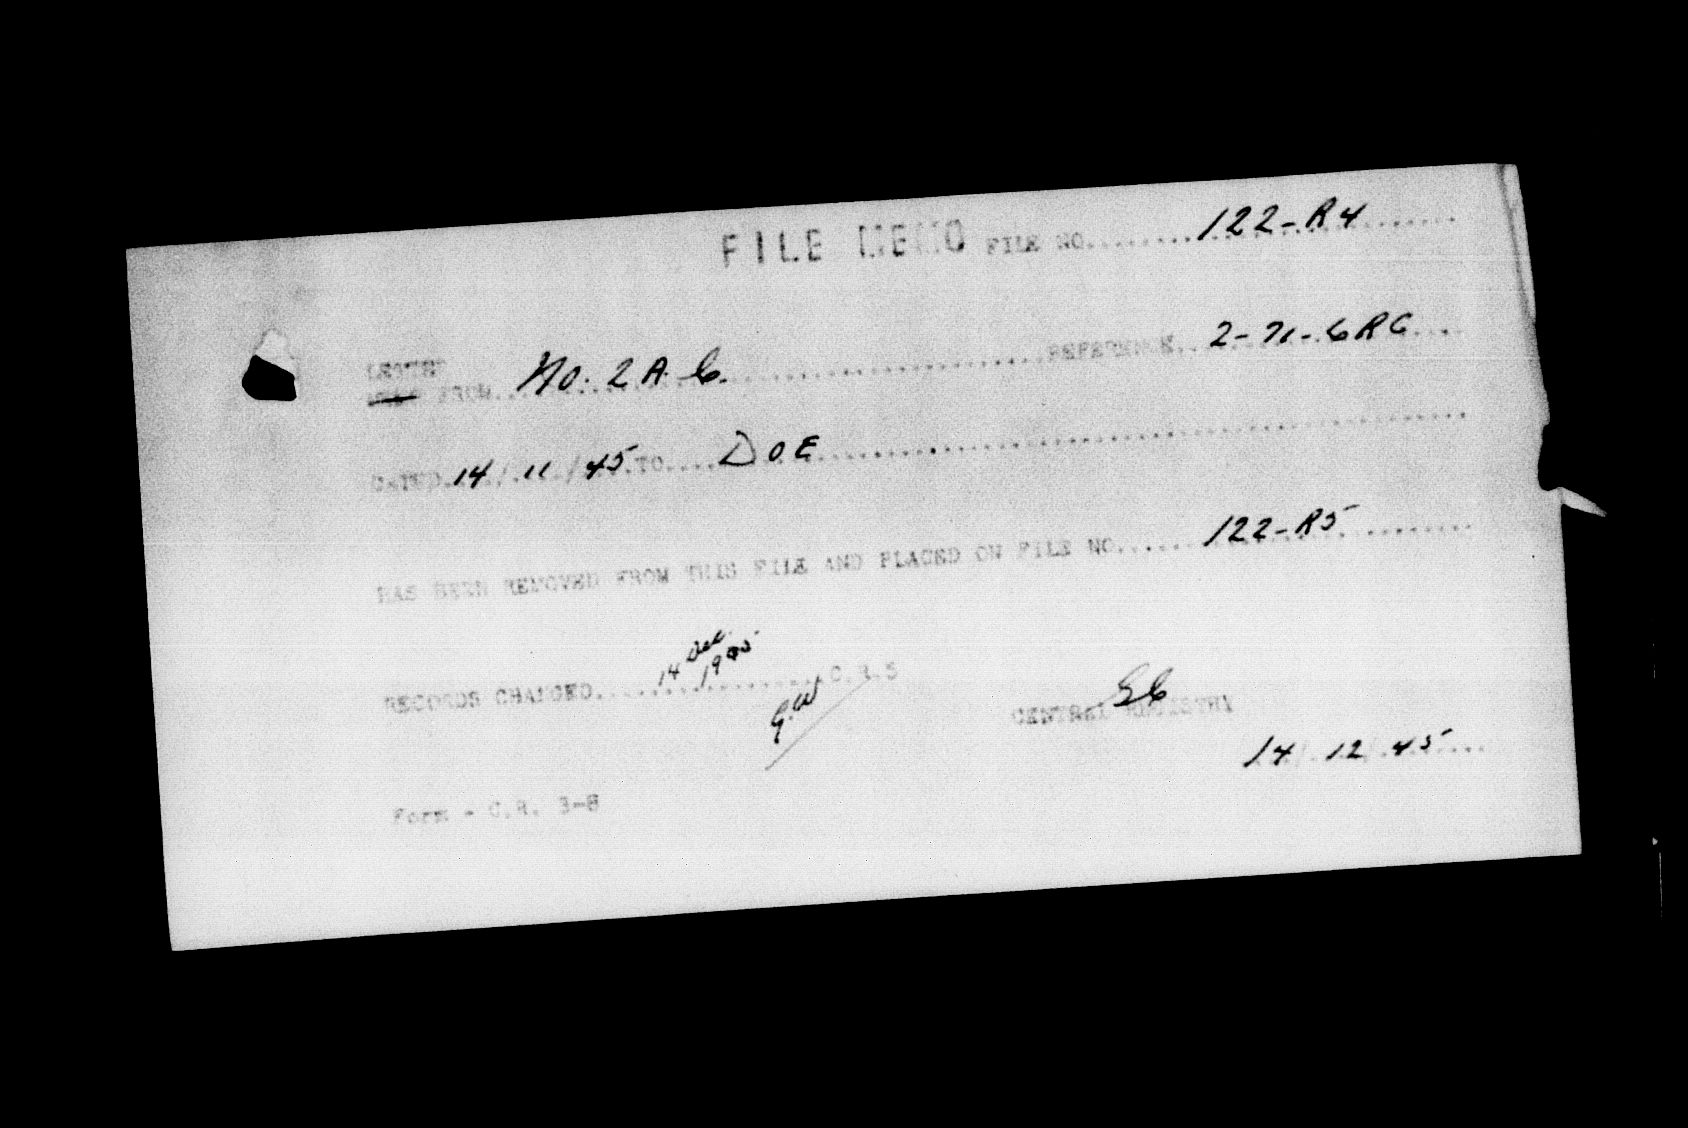 FILE MEMO FILE NO..........122-R4.......
LETTER
FROM...No. 2 A. C.......................REFERENCE...2-71-6RC....
DATED.14./.11./45.TO....DOE.......................................
HAS BEEN REMOVED FROM THIS FILE AND PLACED ON FILE NO......122-R5........
RECORDS CHANGED....14 Dec 1945....C.R.5
G.W
CENTRAL REGISTRY
14 12 45
Form - C.R. 3-8